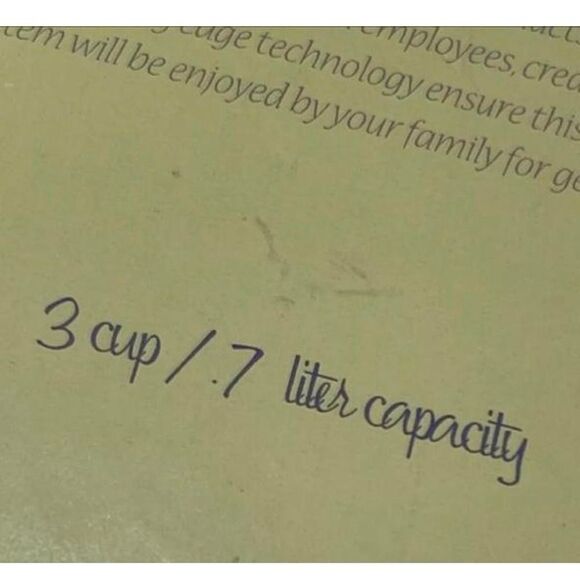 employees, crea
edge technology ensure this
will be enjoyed by your family for ge
3 cup / .7 liter capacity